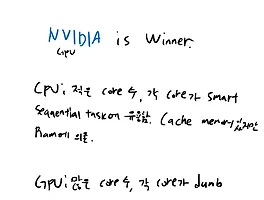 NVIDIA is Winner.
GPU
CPU: 적은 core 수, 각 core가 smart
Sequential task에 유용함. Cache memory 있지만
Ram에 의존.
GPU: 많은 core 수, 각 core가 dumb